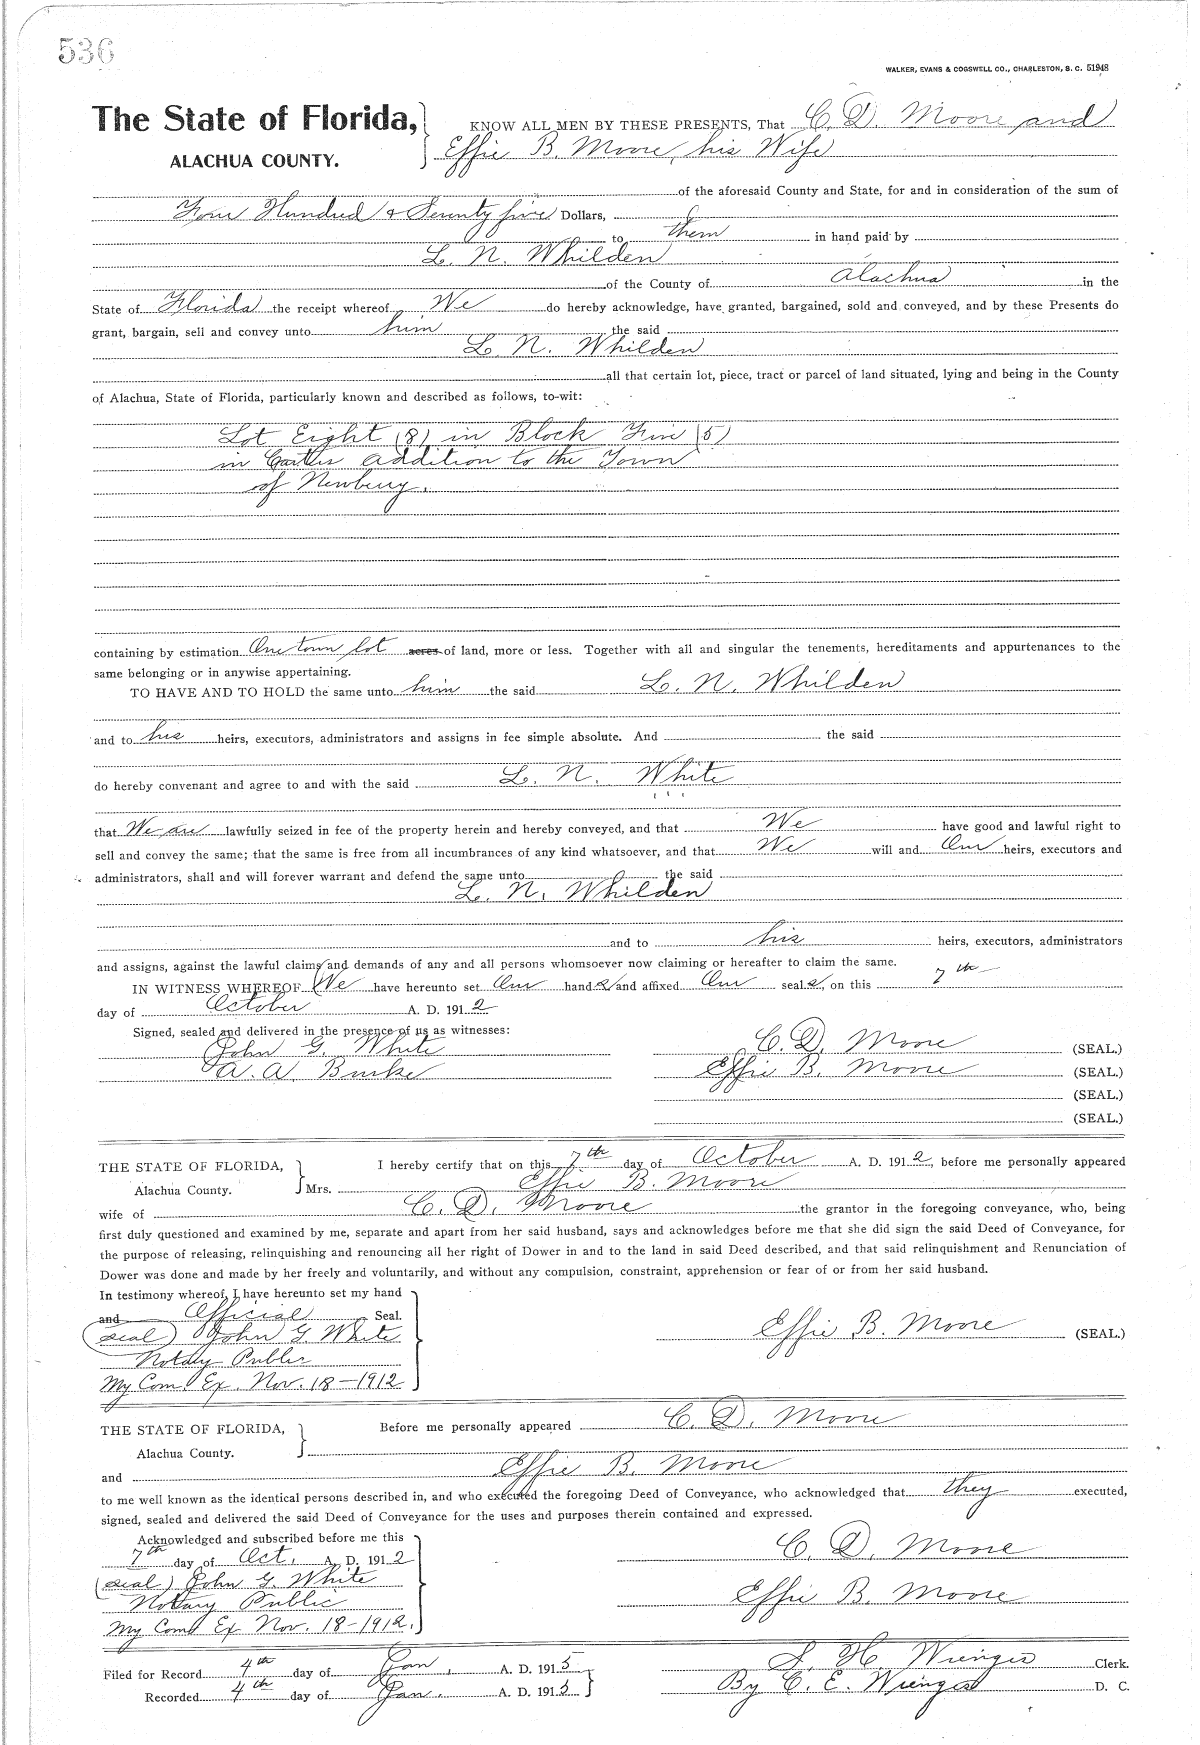 536
WALKER, EVANS & COGSWELL CO., CHARLESTON, S. C. 51948
The State of Florida,
ALACHUA COUNTY.
KNOW ALL MEN BY THESE PRESENTS, That C. D. Moore and
Effie B. Moore, his Wife
of the aforesaid County and State, for and in consideration of the sum of
Four Hundred & Seventy five Dollars,
to them in hand paid by
L. N. Whilden
of the County of Alachua in the
State of Florida the receipt whereof We do hereby acknowledge, have granted, bargained, sold and conveyed, and by these Presents do
grant, bargain, sell and convey unto him the said
L. N. Whilden
all that certain lot, piece, tract or parcel of land situated, lying and being in the County
of Alachua, State of Florida, particularly known and described as follows, to-wit:
Lot Eight (8) in Block Five (5)
in Carters addition to the Town
of Newberry.
containing by estimation One town lot acres of land, more or less. Together with all and singular the tenements, hereditaments and appurtenances to the
same belonging or in anywise appertaining.
TO HAVE AND TO HOLD the same unto him the said L. N. Whilden
and to his heirs, executors, administrators and assigns in fee simple absolute. And the said
do hereby convenant and agree to and with the said L. N. White
that We are lawfully seized in fee of the property herein and hereby conveyed, and that We have good and lawful right to
sell and convey the same; that the same is free from all incumbrances of any kind whatsoever, and that We will and Our heirs, executors and
administrators, shall and will forever warrant and defend the same unto the said
L. N. Whilden
and to his heirs, executors, administrators
and assigns, against the lawful claims and demands of any and all persons whomsoever now claiming or hereafter to claim the same.
IN WITNESS WHEREOF We have hereunto set Our hands and affixed Our seals, on this 7th
day of October A. D. 1912
Signed, sealed and delivered in the presence of us as witnesses:
John G. White C. D. Moore (SEAL.)
A. A. Burke Effie B. Moore (SEAL.)
(SEAL.)
(SEAL.)
THE STATE OF FLORIDA,
Alachua County.
I hereby certify that on this 7th day of October A. D. 1912, before me personally appeared
Mrs. Effie B. Moore
wife of C. D. Moore the grantor in the foregoing conveyance, who, being
first duly questioned and examined by me, separate and apart from her said husband, says and acknowledges before me that she did sign the said Deed of Conveyance, for
the purpose of releasing, relinquishing and renouncing all her right of Dower in and to the land in said Deed described, and that said relinquishment and Renunciation of
Dower was done and made by her freely and voluntarily, and without any compulsion, constraint, apprehension or fear of or from her said husband.
In testimony whereof, I have hereunto set my hand
and Official Seal.
(seal) John G. White Effie B. Moore (SEAL.)
Notary Public
My Com. Ex. Nov. 18-1912
THE STATE OF FLORIDA,
Alachua County.
Before me personally appeared C. D. Moore
and Effie B. Moore
to me well known as the identical persons described in, and who executed the foregoing Deed of Conveyance, who acknowledged that they executed,
signed, sealed and delivered the said Deed of Conveyance for the uses and purposes therein contained and expressed.
Acknowledged and subscribed before me this
7th day of Oct. A. D. 1912 C. D. Moore
(seal) John G. White
Notary Public Effie B. Moore
My Com. Ex Nov. 18-1912.
Filed for Record 4th day of Jan. A. D. 1913 S. H. Wienges Clerk.
Recorded 4th day of Jan. A. D. 1913 By C. E. Wienges D. C.